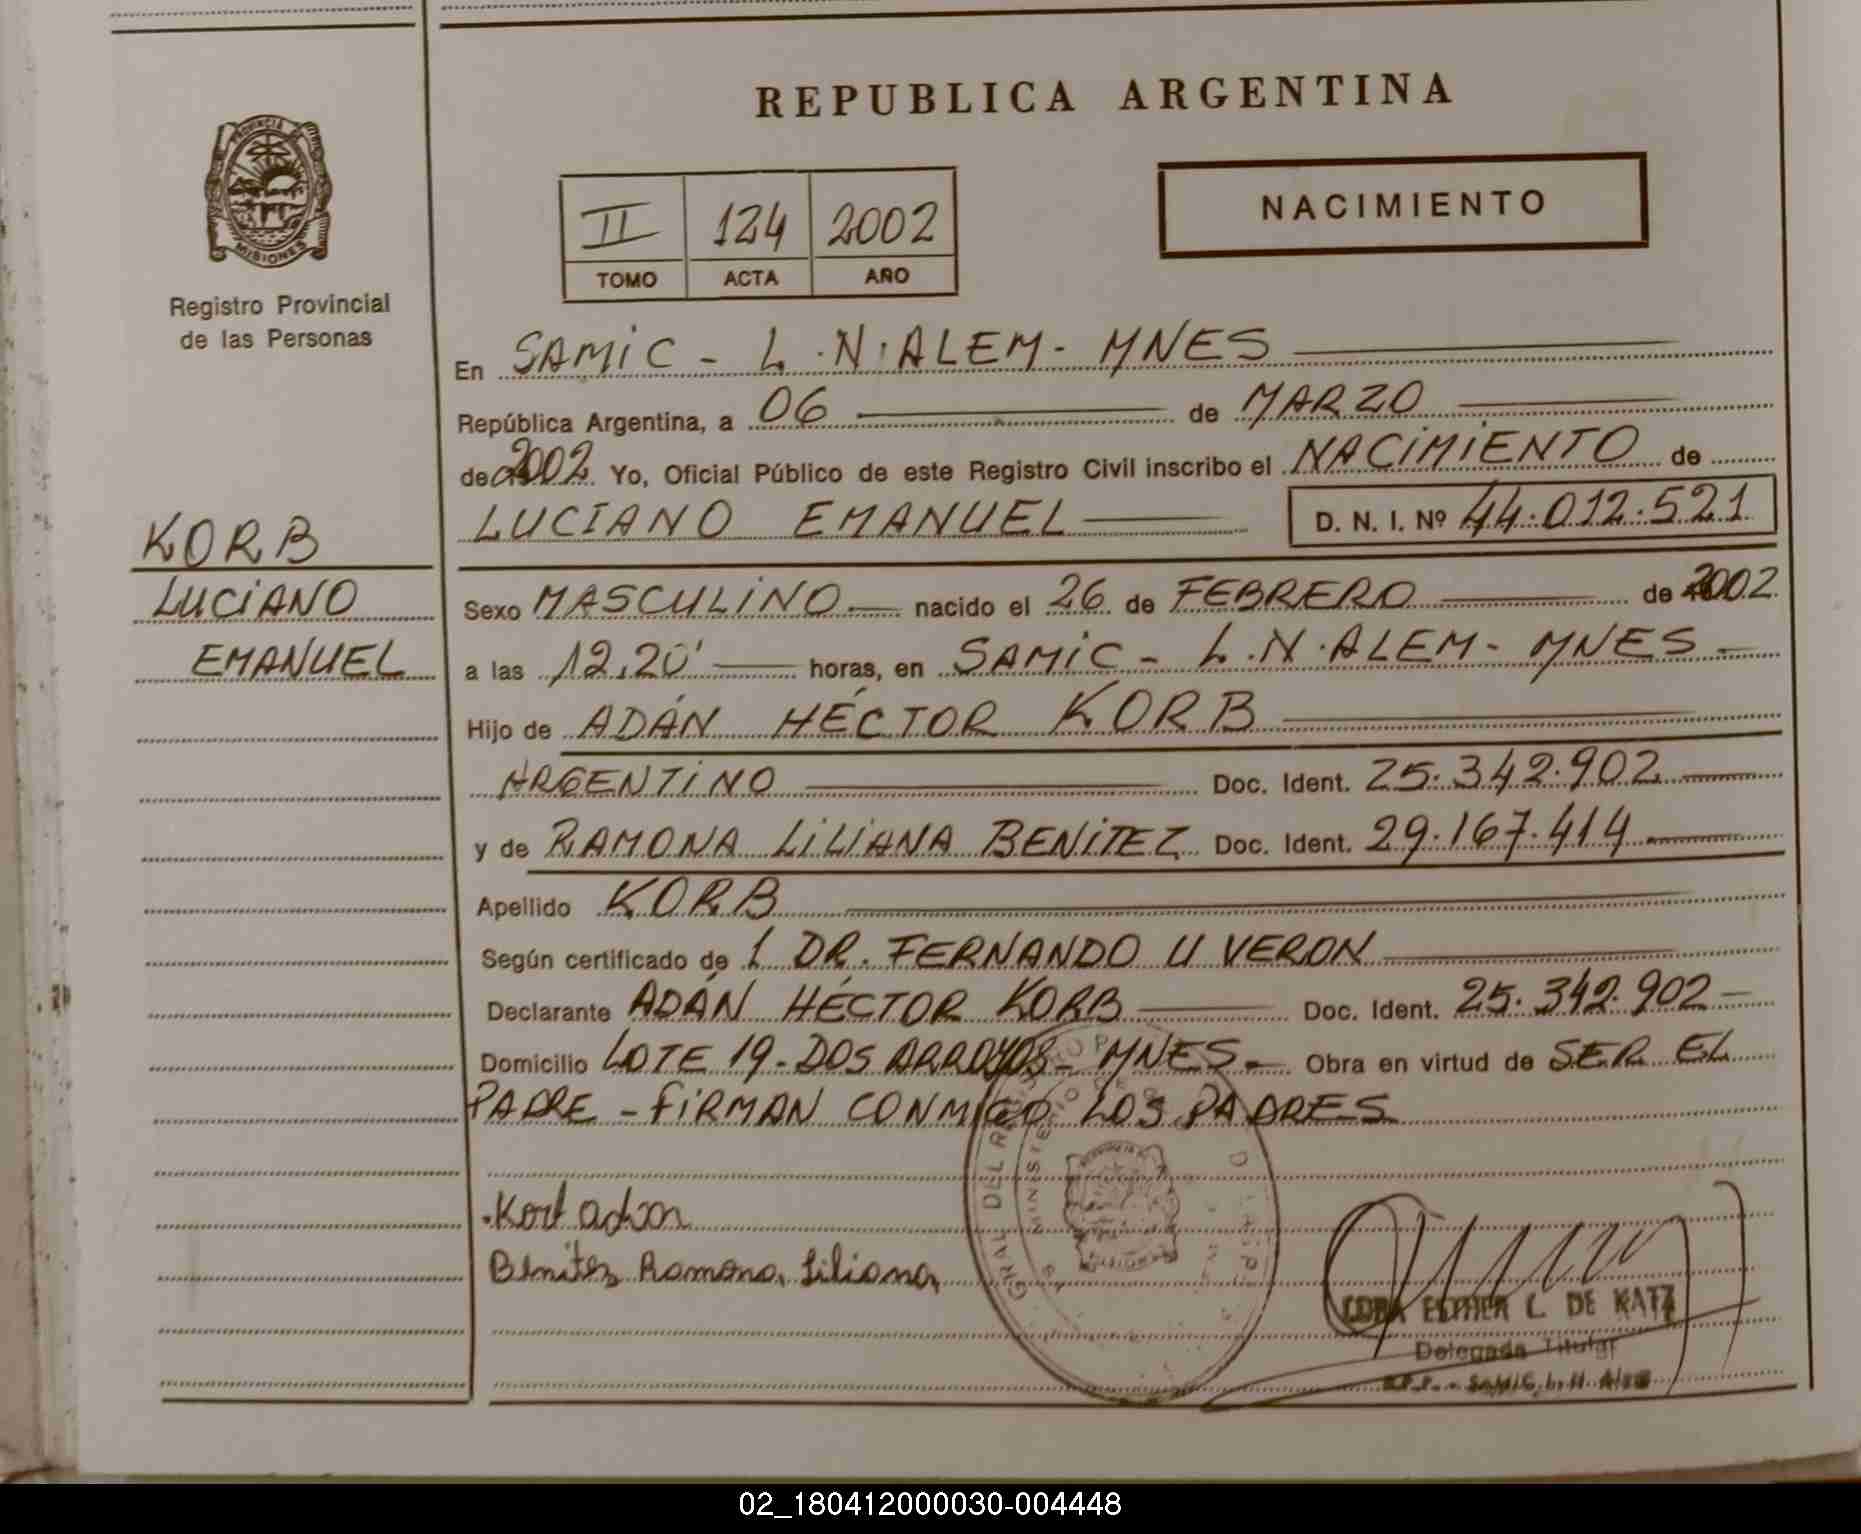 REPUBLICA ARGENTINA
PROVINCIA DE
MISIONES
Registro Provincial
de las Personas
II 124 2002
TOMO ACTA AÑO
NACIMIENTO
En SAMIC - L.N.ALEM - MNES
República Argentina, a 06 de MARZO
de 2002 Yo, Oficial Público de este Registro Civil inscribo el NACIMIENTO de
LUCIANO EMANUEL D. N. I. Nº 44.012.521
KORB
LUCIANO
EMANUEL
Sexo MASCULINO nacido el 26 de FEBRERO de 2002
a las 12,20' horas, en SAMIC - L.N.ALEM - MNES -
Hijo de ADÁN HÉCTOR KORB
ARGENTINO Doc. Ident. 25.342.902
y de RAMONA LILIANA BENITEZ Doc. Ident. 29.167.414
Apellido KORB
Según certificado de l DR. FERNANDO U VERON
Declarante ADÁN HÉCTOR KORB Doc. Ident. 25.342.902 -
Domicilio LOTE 19 - DOS ARROYOS - MNES - Obra en virtud de SER EL
PADRE - FIRMAN CONMIGO LOS PADRES
GRAL DEL R
MINISTERIO DE
MISIONES
Benitez Ramona Liliana
ESTHER L. DE KATZ
Delegada Titular
SAMIC L. N. Alem
02_180412000030-004448